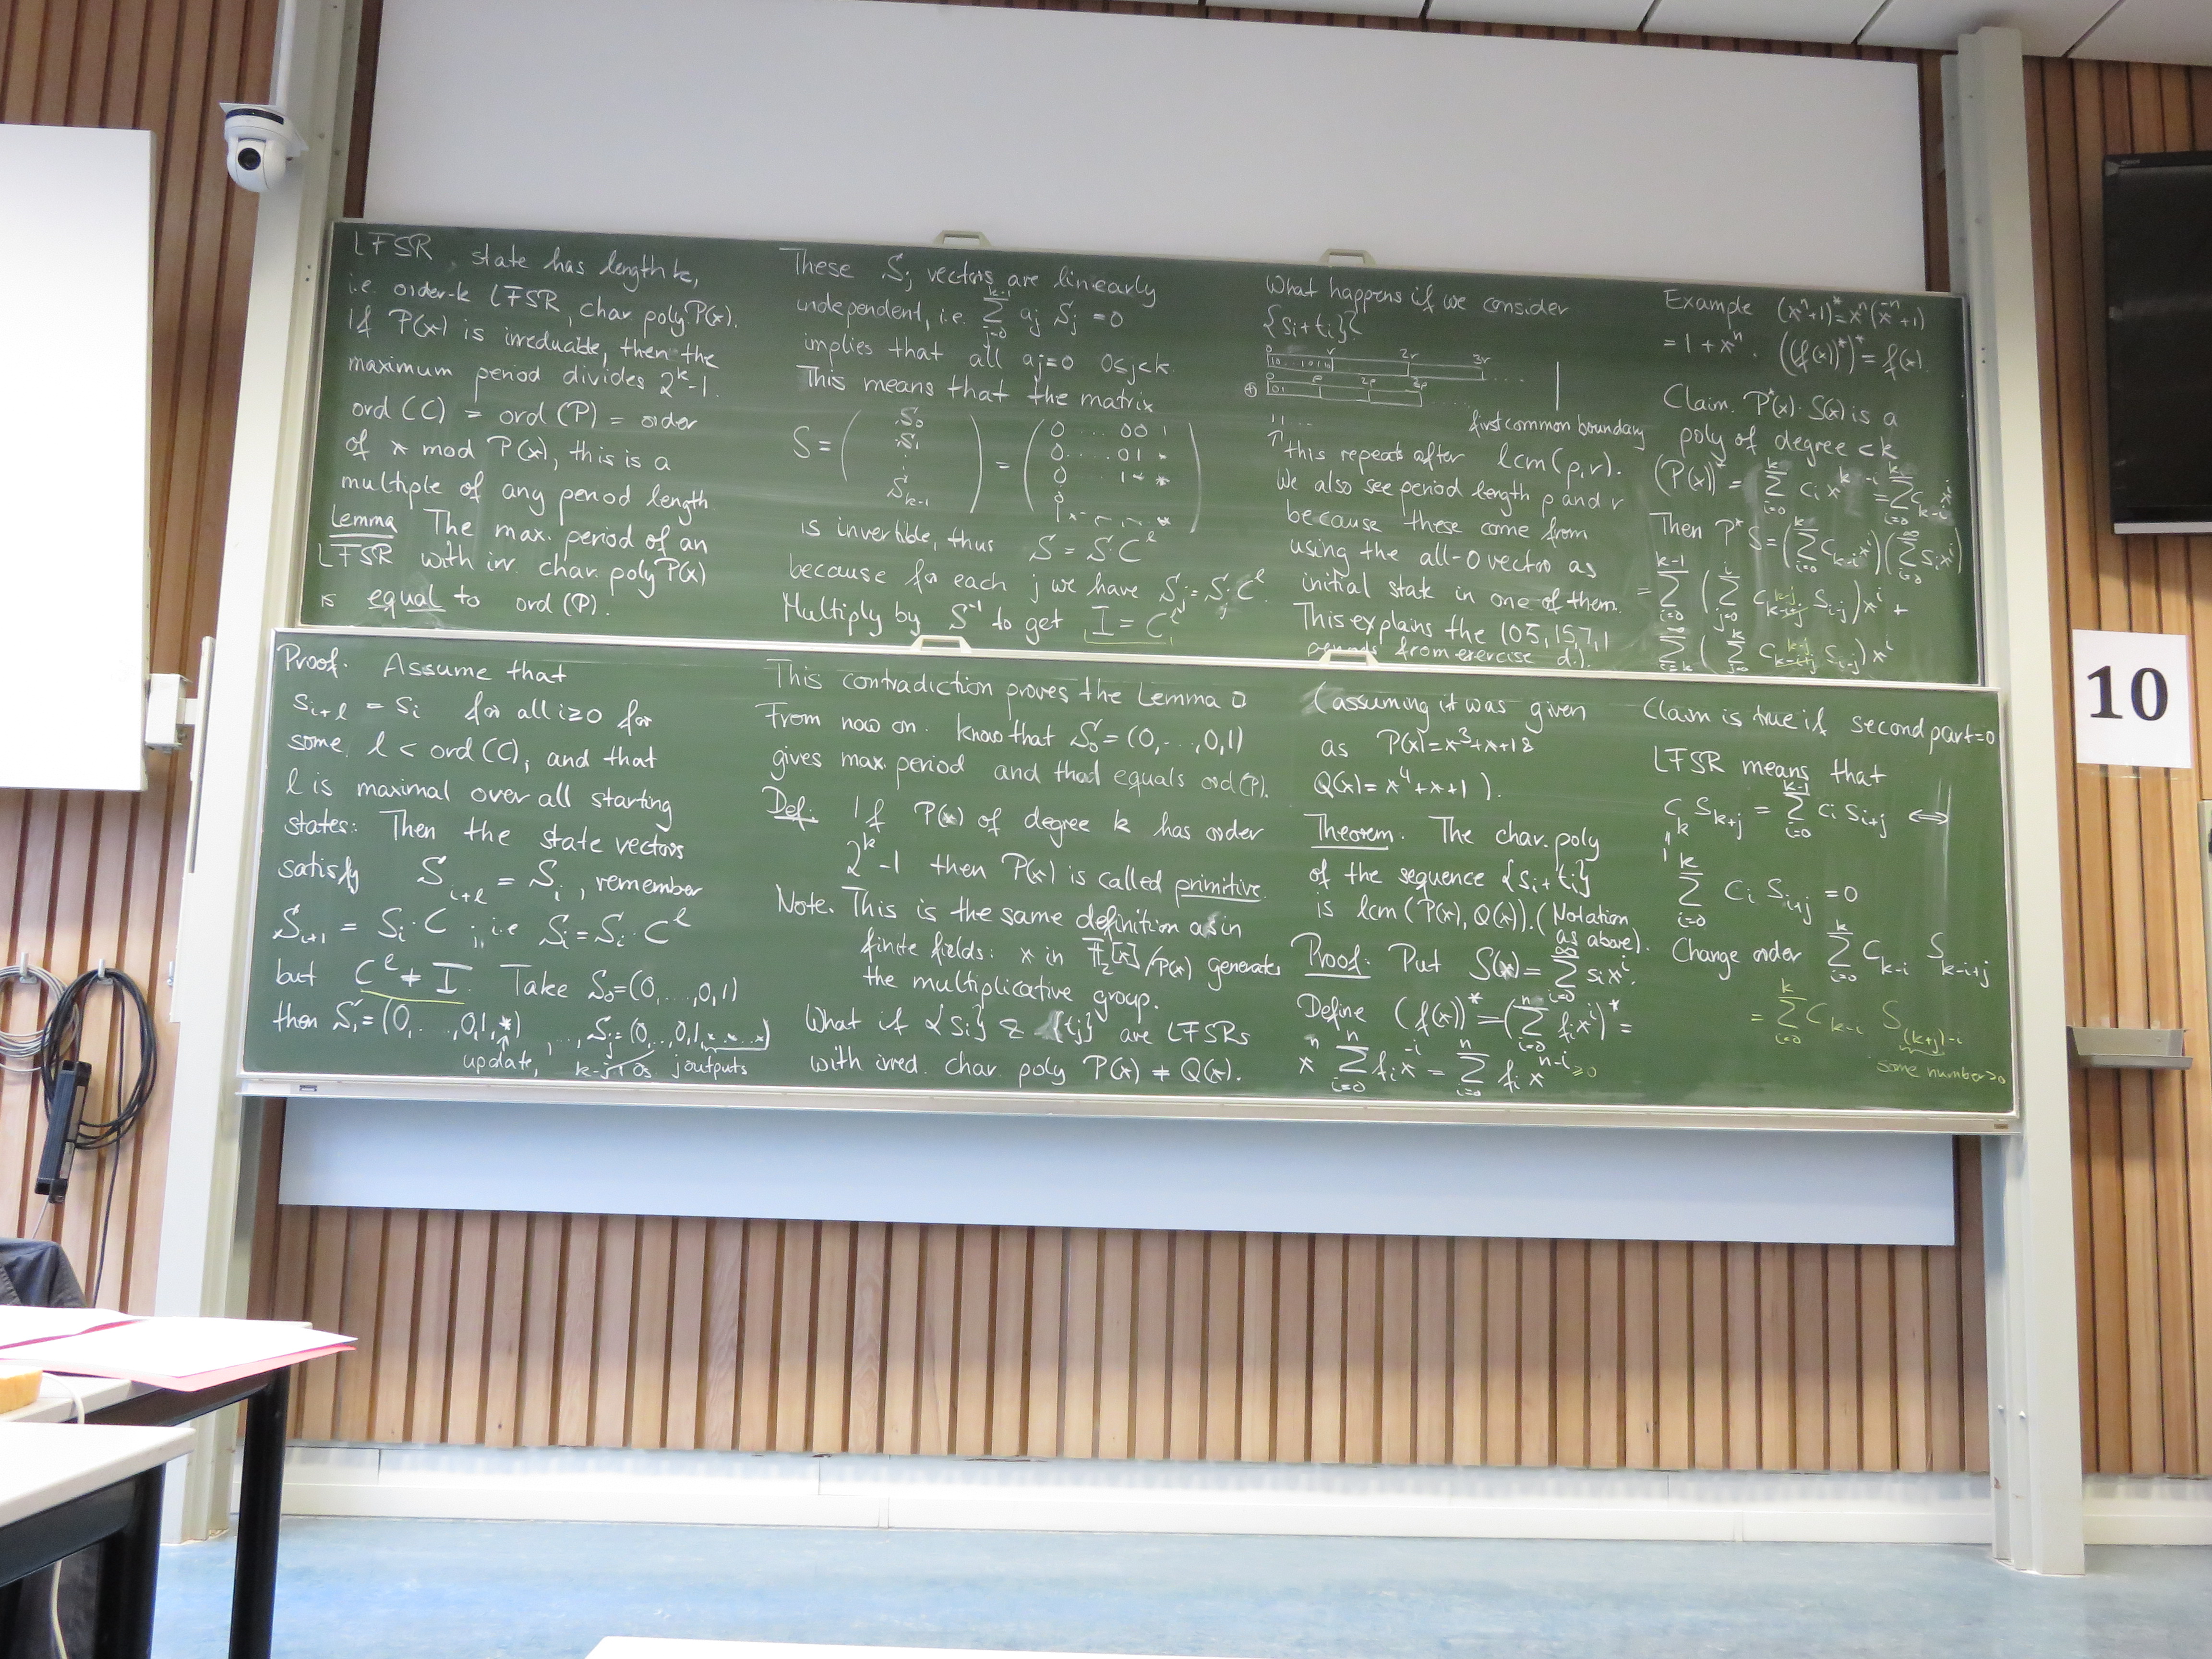 LFSR, state has length k,
i.e. order-k LFSR, char. poly. P(x).
If P(x) is irreducible, then the
maximum period divides 2^k-1.
ord(C) = ord(P) = order
of x mod P(x), this is a
multiple of any period length
Lemma The max. period of an
LFSR with irr. char. poly P(x)
is equal to ord(P).
Proof. Assume that
s_{i+l} = s_i for all i≥0 for
some l < ord(C), and that
l is maximal over all starting
states. Then the state vectors
satisfy S_{i+l} = S_i, remember
S_{i+1} = S_i·C, i.e S_i = S_i·C^l
but C^l ≠ I. Take S_0=(0,...,0,1)
then S_1=(0,...,0,1,*) ..., S_j=(0,..,0,1,*,...,*)
update, k-j-1 0s j outputs
These S_j vectors are linearly
independent, i.e. Σ_{j=0}^{k-1} a_j S_j = 0
implies that all a_j=0 0≤j<k
This means that the matrix
S = ( S_0 S_1 ⋮ S_{k-1} ) = ( 0 ... 0 0 1
0 ... 0 1 *
0 1 * *
1 * - - - * )
is invertible, thus S = S·C^l
because for each j we have S_j = S_j·C^l.
Multiply by S^{-1} to get I = C^l
This contradiction proves the Lemma □
From now on. know that S_0=(0,...,0,1)
gives max. period and that equals ord(P).
Def. If P(x) of degree k has order
2^k-1 then P(x) is called primitive.
Note. This is the same definition as in
finite fields: x in F_2[x]/P(x) generates
the multiplicative group.
What if {s_i} & {t_i} are LFSRs
with irred. char. poly P(x) ≠ Q(x).
What happens if we consider
{s_i+t_i}?
0 r 2r 3r
10...1010 ....
⊕ 0 ρ 2ρ 3ρ
101 ....
first common boundary
↑ this repeats after lcm(ρ,r).
We also see period length ρ and r
because these come from
using the all-0 vector as
initial state in one of them.
This explains the 105, 15, 7, 1
periods from exercise d.).
(assuming it was given
as P(x)=x^3+x+1 &
Q(x)=x^4+x+1).
Theorem. The char. poly
of the sequence {s_i+t_i}
is lcm(P(x),Q(x)). (Notation
as above).
Proof: Put S(x)=Σ_{i=0}^∞ s_i x^i.
Define (f(x))^* = (Σ_{i=0}^n f_i x^i)^* =
x^n Σ_{i=0}^n f_i x^{-i} = Σ_{i=0}^n f_i x^{n-i ≥0}
Example (x^n+1)^*=x^n(x^{-n}+1)
=1+x^n. ((f(x))^*)^*=f(x).
Claim. P^*(x)·S(x) is a
poly of degree <k
(P(x))^* = Σ_{i=0}^k c_i x^{k-i} = Σ_{i=0}^k c_{k-i} x^i
Then P^*S=(Σ_{i=0}^k c_{k-i} x^i)(Σ_{i=0}^∞ s_i x^i)
= Σ_{i=0}^{k-1} (Σ_{j=0}^i c_{k-j} s_{i-j}) x^i +
Σ_{i=k}^∞ (Σ_{j=0}^k c_{k-j} s_{i-j}) x^i
Claim is true if second part=0
LFSR means that
c_k s_{k+j} = Σ_{i=0}^{k-1} c_i s_{i+j} ⇔
" 1
Σ_{i=0}^k c_i s_{i+j} = 0
Change order Σ_{i=0}^k c_{k-i} s_{k-i+j}
= Σ_{i=0}^k c_{k-i} s_{(k+j)-i}
some number>0
10